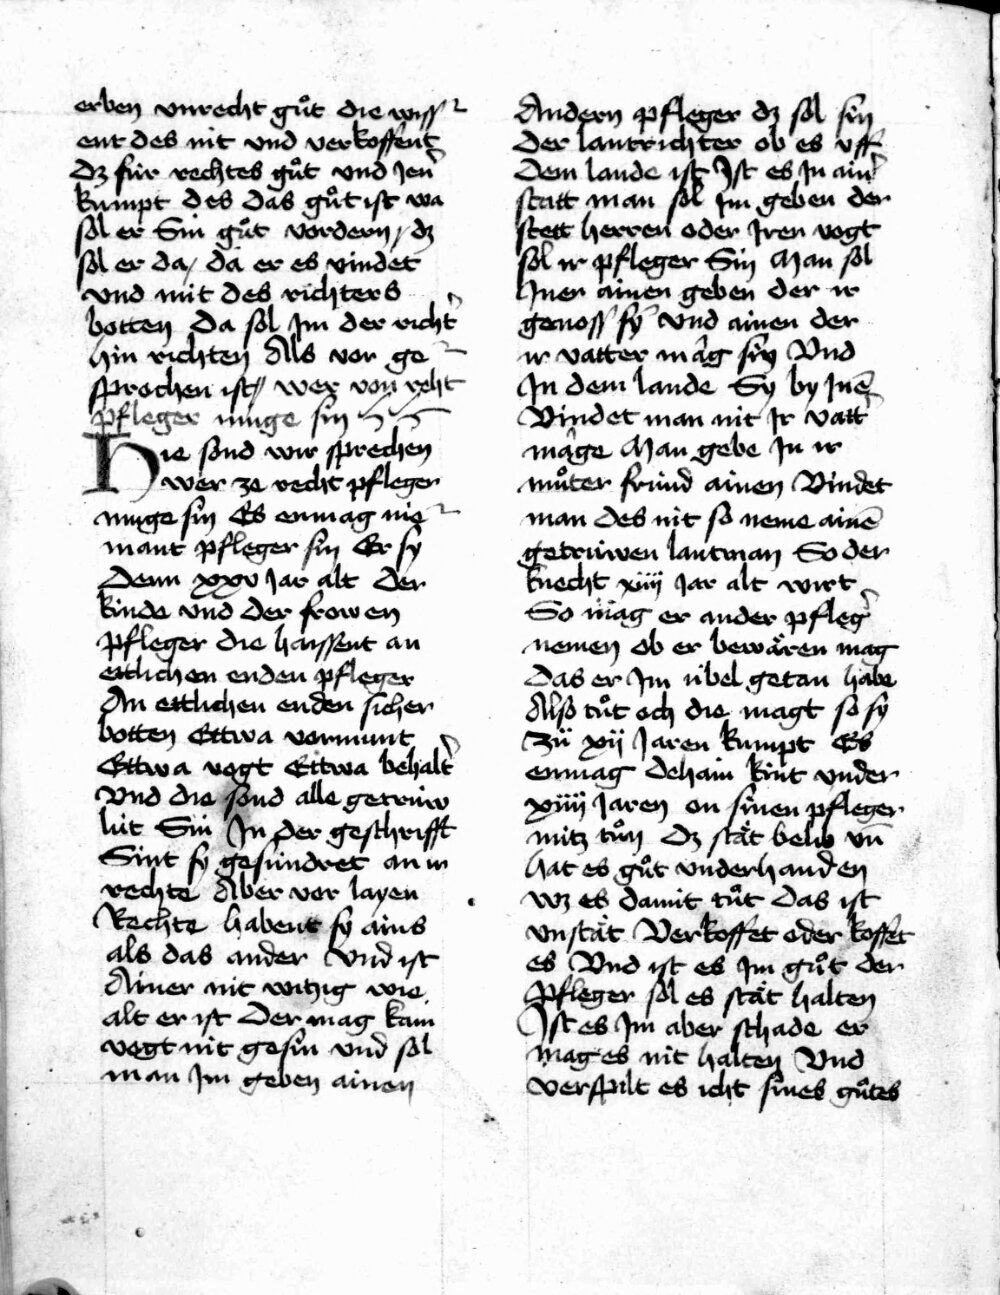 erben vnrecht guͦt die wiss
ent des nit vnd verkoffent
dz fúr rechtes guͦt vnd Jen̄
kumpt des das guͦt ist wa
sol er Sin guͦt vordern / dz
sol er da / da er es vindet
vnd mit des richters
botten Da sol Jm der richt̉
hin richten Als vor ge
sprochen ist // wer von reht
pfleger muge sin
Hie sond wir sprechen
wer ze recht pfleger
muge sin Es enmag nie
mant pfleger sin Er sy
Denn xxv Jar alt der
kinde vnd der frowen
pfleger die haissent an
ettlichen enden pfleger
An ettlichen enden sicher
botten Ettwa vormunt
Ettwa vogt Ettwa behalt̉
Vnd die sond alle getrúw
lút Sin Jn der geschrifft
Sint sy gesúndret an ir
rechte Aber vor layen
Rechte habent sy ains
als das ander Vnd ist
Ainer nit witzig wie
alt er ist Der mag kain
vogt nit gesin vnd sol
man Jm geben ainen
Andern pfleger dz sol sin
Der lantrichter ob es vff
Dem lande ist Jst es Jn ain̉
statt man sol Jm geben der
stett herren oder Jren vogt
sol ir pfleger Sin Man sol
Jnen ainen geben der ir
genoss sy Vnd ainen der
ir vatter mag siy Vnd
Jn dem lande Sy by Jnē
Vindet man nit Jr vatt̉
mage Man gebe Jn ir
muͦter frúnd ainen Vindet
man des nit so neme ainē
getrúwen lantman So der
knecht xiiij Jar alt wirt
So mag er ander pfleg̉
nemen ob er bewären mag
Das er Jm úbel getan habe
Also tuͦt och die magt so sy
Zuͦ xij Jaren kumpt Es
enmag dehain kint vnder
xiiij Jaren on sinen pfleger
nitz tuͦn Dz stät belib vn̄
hat es guͦt vnderhanden
wz es damit tuͦt Das ist
vnstät Verkoffet oder koffet
es Vnd ist es Jm guͦt der
Pfleger sol es stät halten
Jst es Jm aber schade er
mag es nit halten Vnd
verspilt es icht sines guͦtes